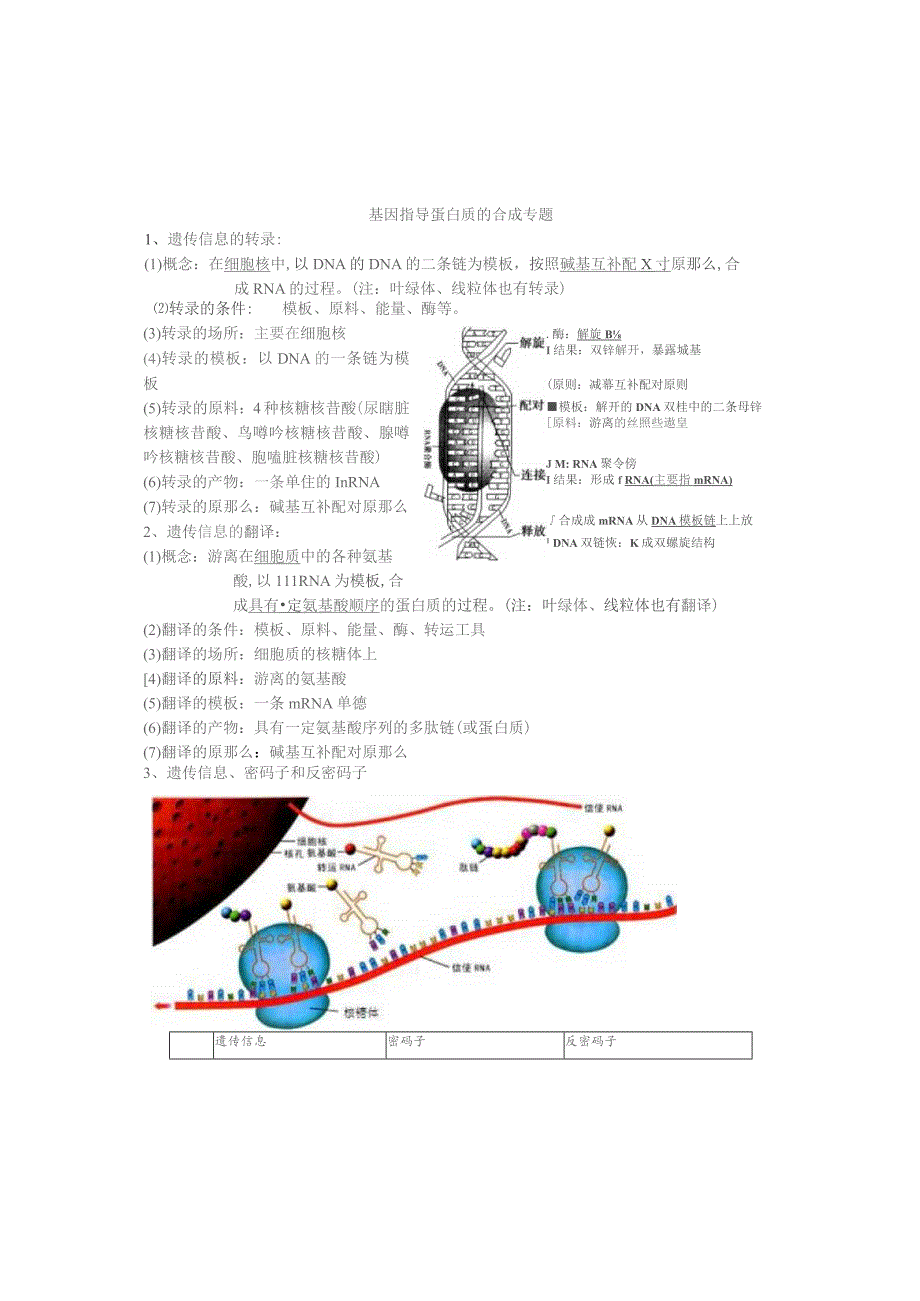 基因指导蛋白质的合成专题
1、遗传信息的转录:
(1)概念：在细胞核中,以 DNA 的 DNA 的二条链为模板，按照碱基互补配 X 寸原那么,合
成 RNA 的过程。(注：叶绿体、线粒体也有转录)
⑵转录的条件: 模板、原料、能量、酶等。
(3)转录的场所：主要在细胞核
(4)转录的模板：以 DNA 的一条链为模
板
(5)转录的原料：4 种核糖核昔酸(尿瞎脏
核糖核昔酸、鸟噂吟核糖核昔酸、腺噂
吟核糖核昔酸、胞嗑脏核糖核昔酸)
(6)转录的产物：一条单住的 InRNA
(7)转录的原那么：碱基互补配对原那么
DNA
RNA聚合酶
DNA
解旋
. 酶：解旋 B⅛
I 结果：双锌解开，暴露城基
配对
(原则：减幕互补配对原则
■模板：解开的 DNA 双桂中的二条母锌
[原料：游离的丝照些逖皇
连接
J M: RNA 聚令傍
I 结果：形成 f RNA(主要指 mRNA)
释放
∫合成成 mRNA 从 DNA 模板链上上放
¹ DNA 双链恢：K 成双螺旋结构
2、遗传信息的翻译：
(1)概念：游离在细胞质中的各种氨基
酸,以 111RNA 为模板,合
成具有•定氨基酸顺序的蛋白质的过程。(注：叶绿体、线粒体也有翻译)
(2)翻译的条件：模板、原料、能量、酶、转运工具
(3)翻译的场所：细胞质的核糖体上
[4)翻译的原料：游离的氨基酸
(5)翻译的模板：一条 mRNA 单德
(6)翻译的产物：具有一定氨基酸序列的多肽链(或蛋白质)
(7)翻译的原那么：碱基互补配对原那么
3、遗传信息、密码子和反密码子
信使RNA
细胞核
核孔 氨基酸
转运RNA
肽链
氨基酸
信使RNA
核糖体
遗传信息 密码子 反密码子